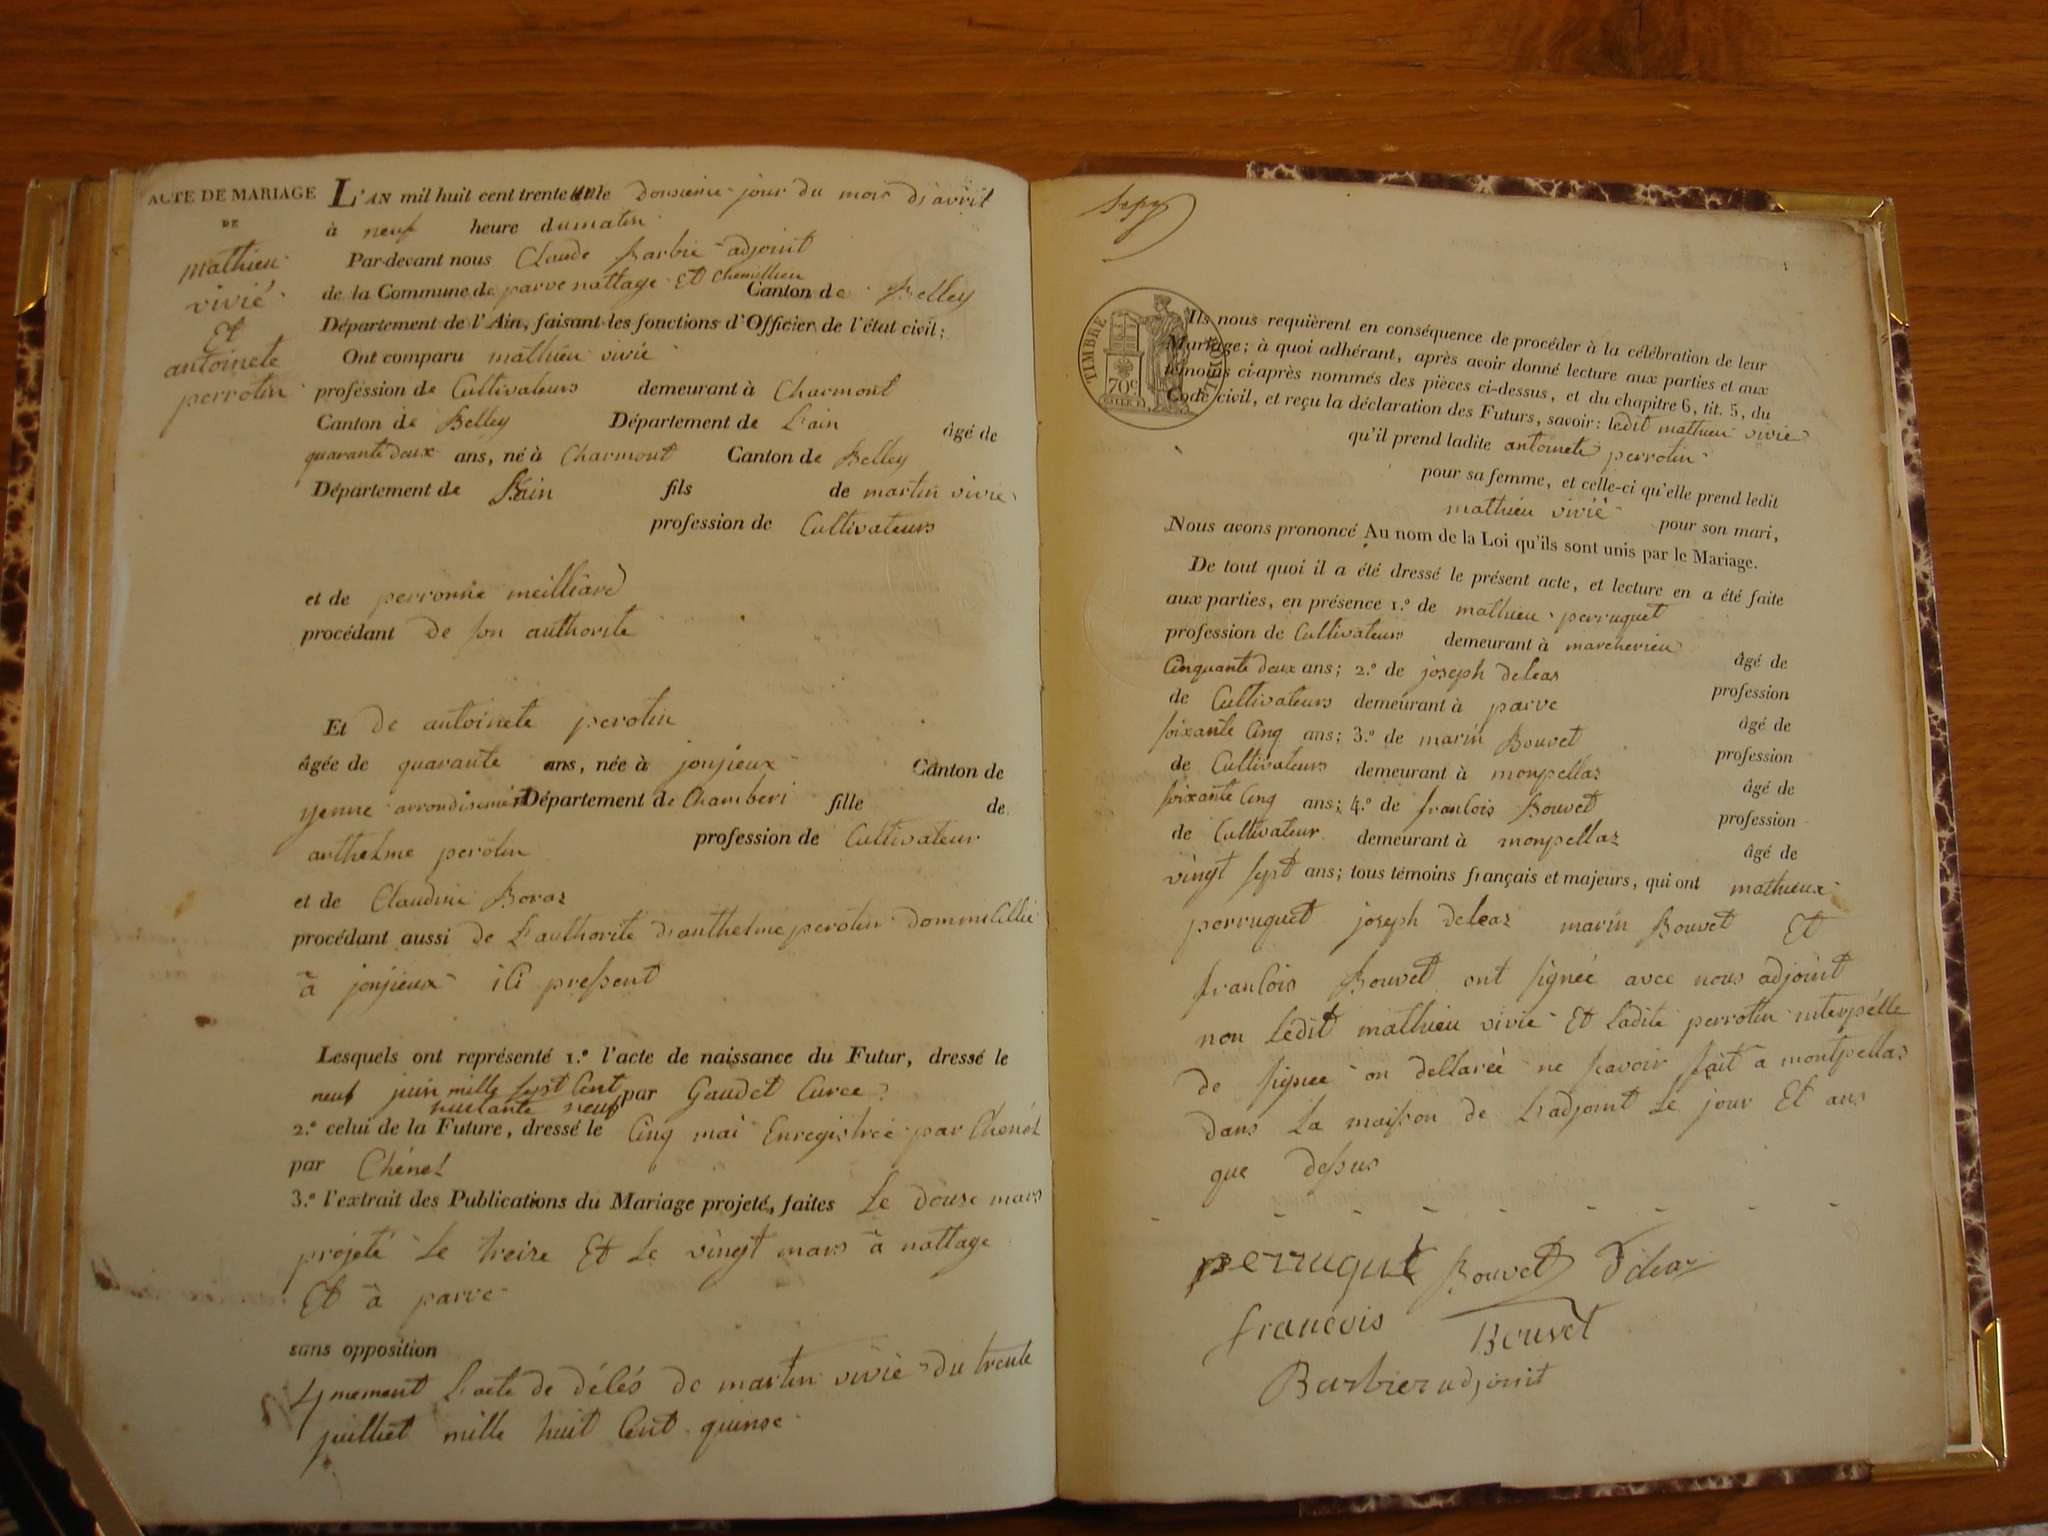 ACTE DE MARIAGE
DE
mathieu
vivié
Et
antoinete
perrotin
L'AN mil huit cent trente un le dousieme jour du mois d'avril
à neuf heure du matin
Par-devant nous Claude Barbié adjoint
de la Commune de parve nattage Et Chemillieu Canton de Belley
Département de l'Ain, faisant les fonctions d'Officier de l'état civil:
Ont comparu mathieu vivié
profession de Cultivateurs demeurant à Charmont
Canton de Belley Département de L'ain âgé de
quarante deux ans, né à Charmont Canton de Belley
Département de fils de martin vivié
profession de Cultivateurs
et de perronne meilliard
procédant de son authorite
Et de antoinete perotin
âgée de quarante ans, née à jonjieux Canton de
yenne arrondisement Département de Chamberi fille de
anthelme perotin profession de Cultivateur
et de Claudine Boraz
procédant aussi de L'authorité d'anthelme perotin dommicillié
à jonjieux ici present
Lesquels ont représenté 1.º l'acte de naissance du Futur, dressé le
neuf juin mille sept Cent par Gaudet Curee
huitante neuf
2.º celui de la Future, dressé le Cinq mai Enregistree par Chenel
par Chénel
3.º l'extrait des Publications du Mariage projeté, faites Le douse mars
projeté Le treize Et Le vingt mars à nattage
Et à parve
sans opposition
4mement L'acte de délés de martin vivié du trente
juilliet mille huit Cent quinse
TIMBRE
70c
Ils nous requièrent en conséquence de procéder à la célébration de leur
Mariage; à quoi adhérant, après avoir donné lecture aux parties et aux
témoins ci-après nommés des pièces ci-dessus, et du chapitre 6, tit. 5, du
Code civil, et reçu la déclaration des Futurs, savoir: ledit mathieu vivié
qu'il prend ladite antoinete perrotin
pour sa femme, et celle-ci qu'elle prend ledit
mathieu vivié pour son mari,
Nous avons prononcé Au nom de la Loi qu'ils sont unis par le Mariage.
De tout quoi il a été dressé le présent acte, et lecture en a été faite
aux parties, en présence 1.º de mathieu perruquet
profession de Cultivateurs demeurant à marcherieu âgé de
Cinquante deux ans; 2.º de joseph deleaz profession
de Cultivateurs demeurant à parve âgé de
soixante Cinq ans; 3.º de marin Bouvet profession
de Cultivateurs demeurant à monpellaz âgé de
soixante Cinq ans; 4.º de francois Bouvet profession
de Cultivateur demeurant à monpellaz âgé de
vingt sept ans; tous témoins français et majeurs, qui ont mathieux
perruquet joseph deleaz marin Bouvet Et
francois Bouvet ont signeé avec nous adjoint
non Ledit mathieu vivié Et Ladite perrotin interpéllé
de signee on dellareé ne savoir fait a montpellas
dans La maison de L'adjoint Le jour Et ans
que dessus
perruquet Bouvet Deleaz
francois Bouvet
Barbier adjoint